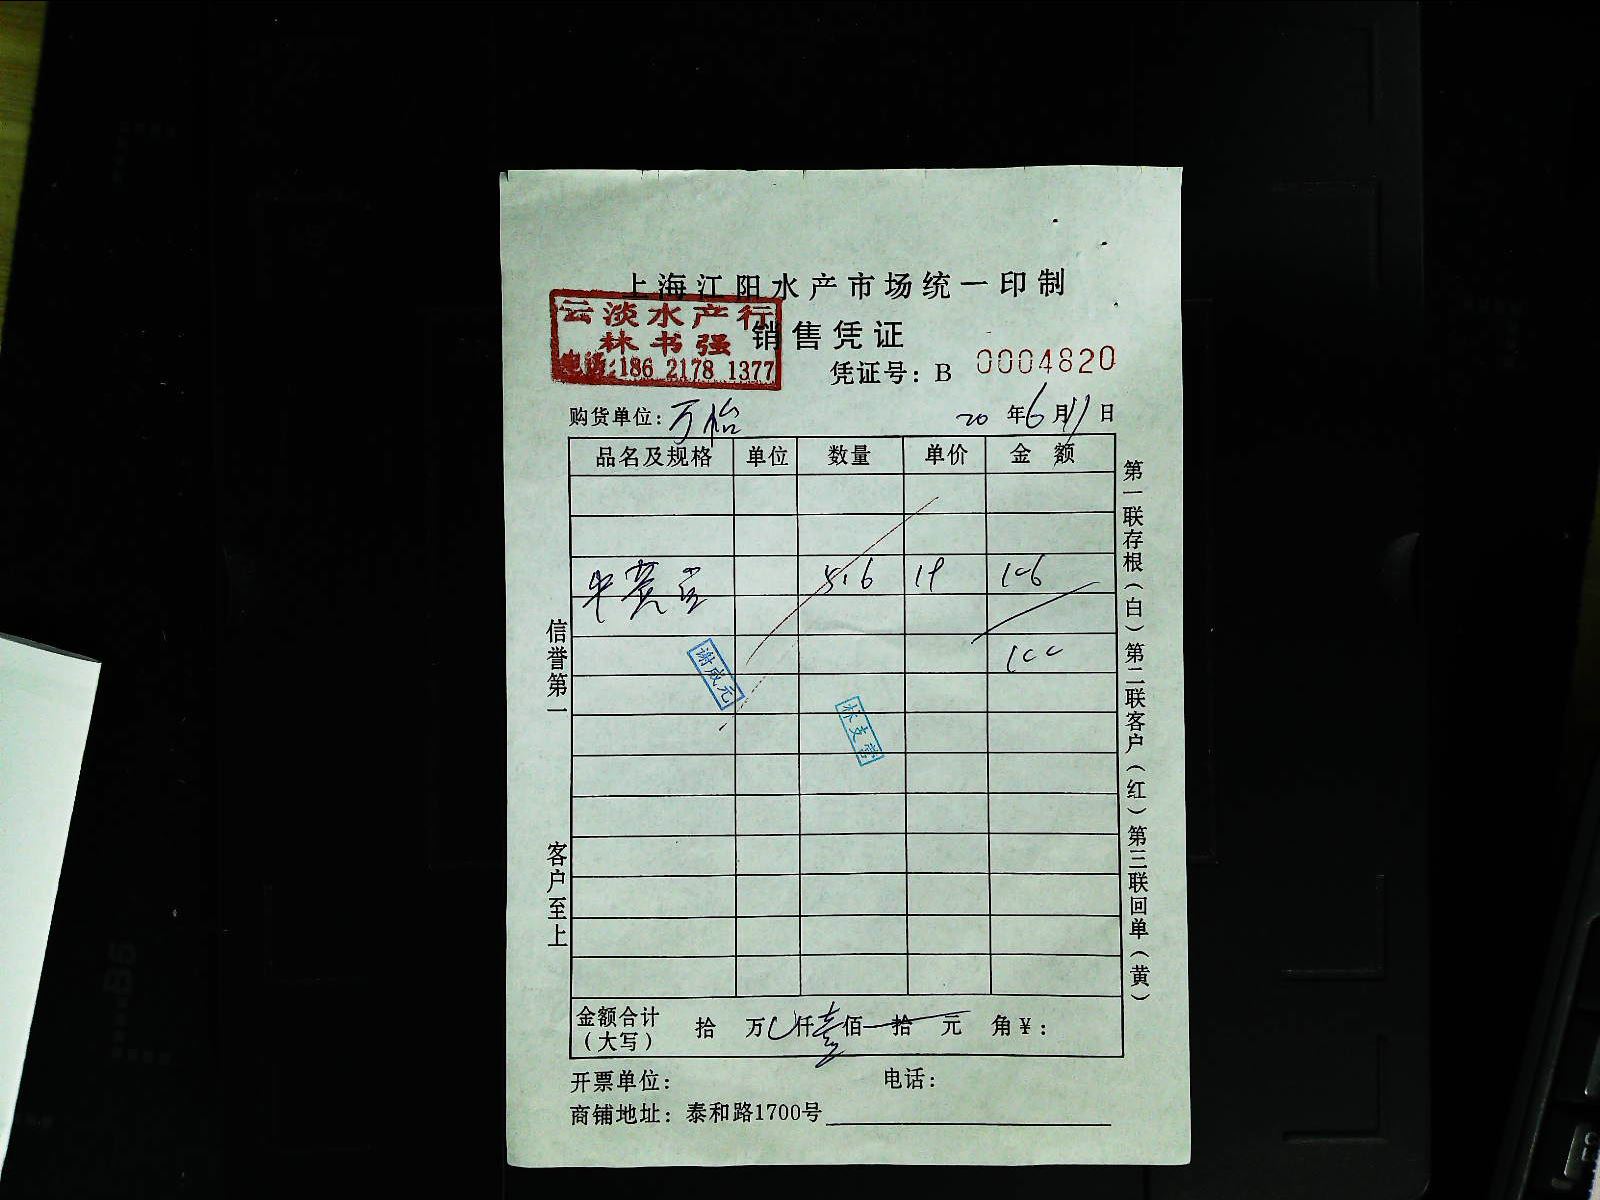 上海江阳水产市场统一印制
云淡水产行
林书强
电话:186 2178 1377
销售凭证
凭证号: B 0004820
购货单位: 万怡
20 年 6 月 11 日
品名及规格 单位 数量 单价 金 额
5.6 19 106
100
谢成元
信誉第一
客户至上
第一联存根(白)第二联客户(红)第三联回单(黄)
金额合计 拾 万 仟 壹 佰 拾 元 角 ¥:
(大写)
开票单位: 电话:
商铺地址: 泰和路1700号